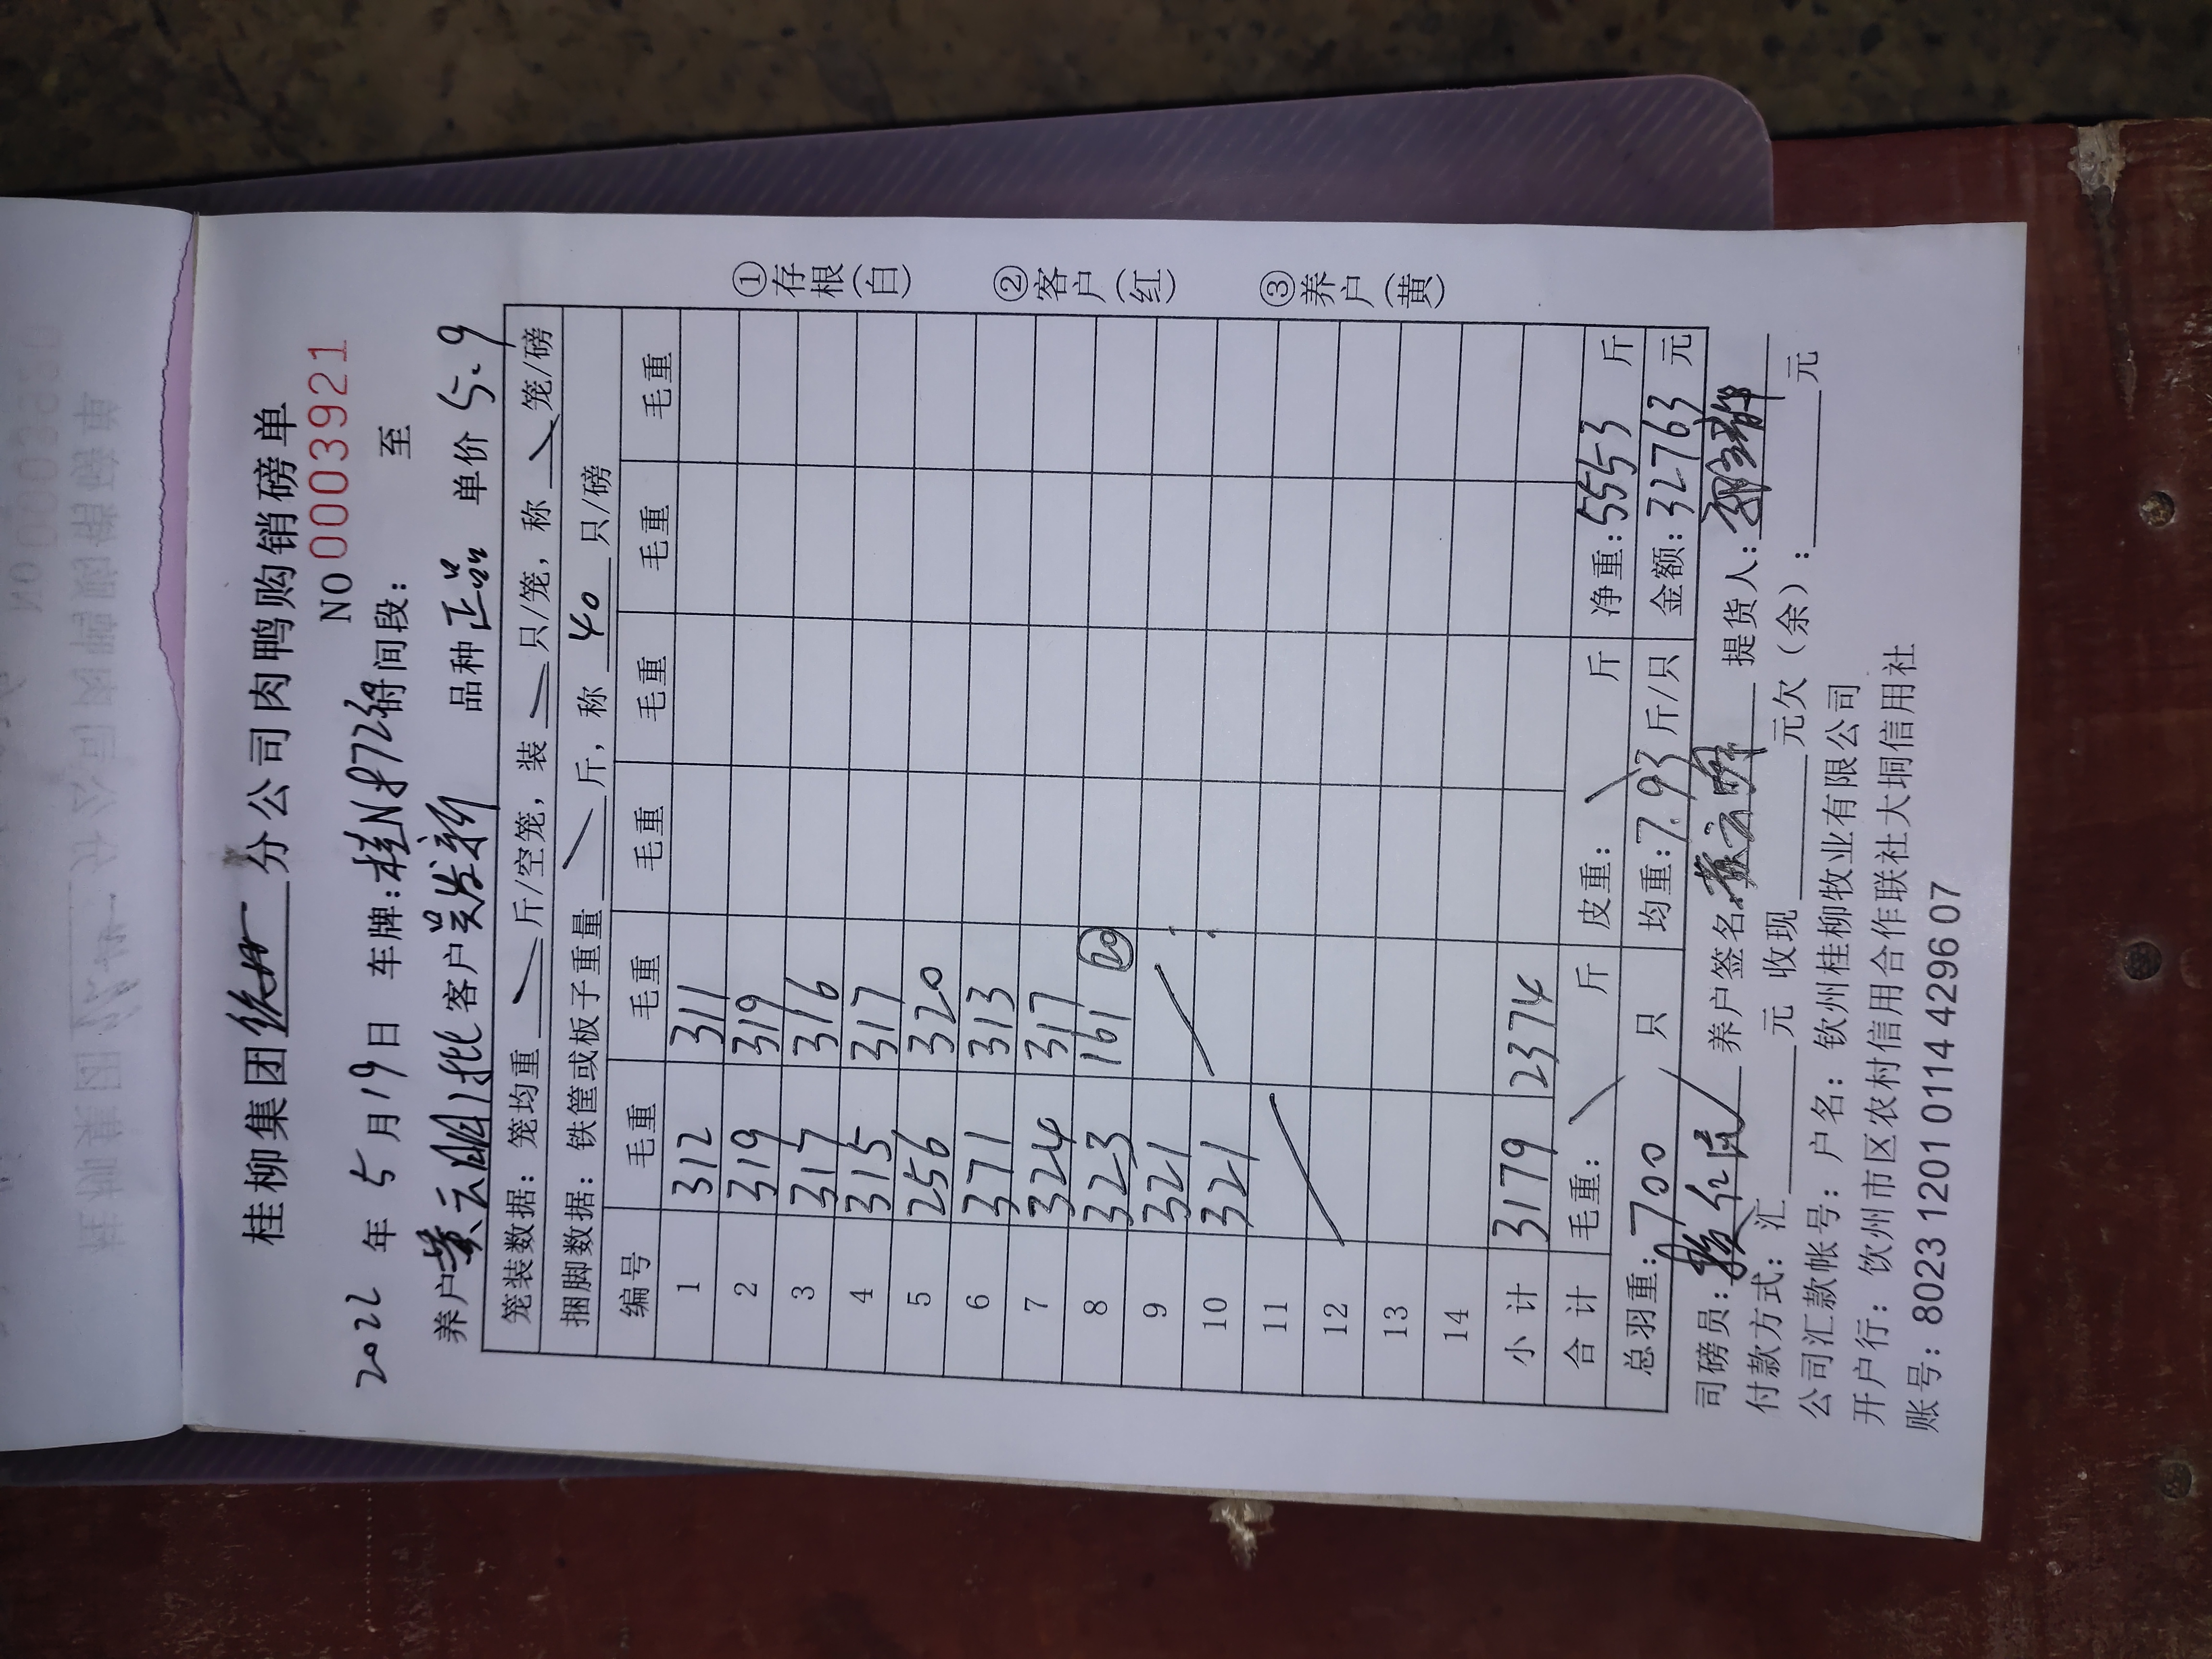 桂柳集团 分公司肉鸭购销磅单
NO 0003921
2022 年 5 月 19 日 车牌:桂N8723 间段: 至
养户 黄云明1批 客户 吴发新 品种 正品 单价 5.9
笼装数据: 笼均重 斤/空笼, 装 只/笼, 称 笼/磅
捆脚数据: 铁筐或板子重量 斤, 称 40 只/磅
编号 毛重 毛重 毛重 毛重 毛重 毛重
1 312 311
2 319 319
3 317 316
4 315 317
5 256 320
6 371 313
7 324 317
8 323 161 20
9 321
10 321
11
12
13
14
小计 3179 2374
合计 毛重: 斤 皮重: 斤 净重: 5553 斤
总羽重: 700 只 均重: 7.93 斤/只 金额: 32763 元
司磅员: 养户签名 黄云明 提货人:
付款方式: 汇 元 收现 元欠(余): 元
公司汇款帐号: 户名: 钦州桂柳牧业有限公司
开户行: 钦州市区农村信用合作联社大垌信用社
账号: 8023 1201 0114 4296 07
①存根(白)
②客户(红)
③养户(黄)